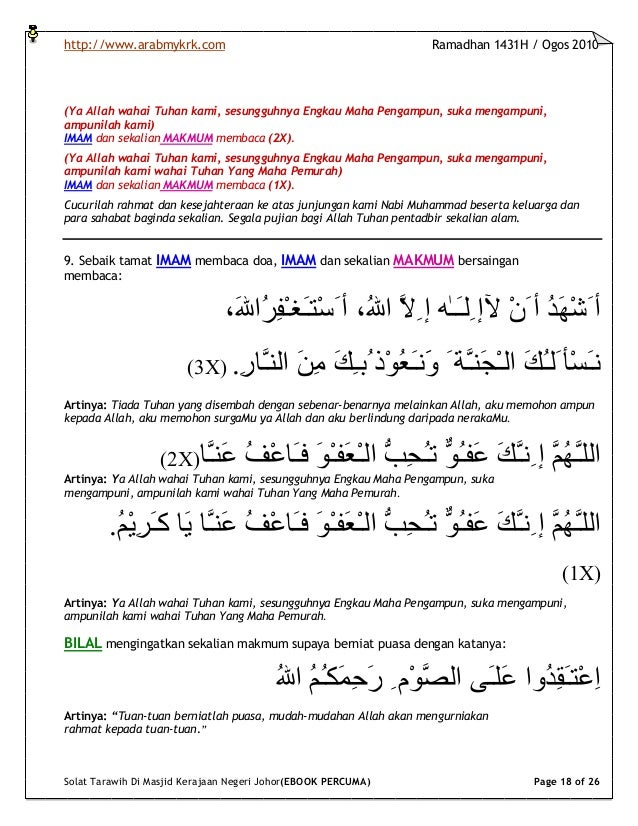 http://www.arabmykrk.com Ramadhan 1431H / Ogos 2010
(Ya Allah wahai Tuhan kami, sesungguhnya Engkau Maha Pengampun, suka mengampuni,
ampunilah kami)
IMAM dan sekalian MAKMUM membaca (2X).
(Ya Allah wahai Tuhan kami, sesungguhnya Engkau Maha Pengampun, suka mengampuni,
ampunilah kami wahai Tuhan Yang Maha Pemurah)
IMAM dan sekalian MAKMUM membaca (1X).
Cucurilah rahmat dan kesejahteraan ke atas junjungan kami Nabi Muhammad beserta keluarga dan
para sahabat baginda sekalian. Segala pujian bagi Allah Tuhan pentadbir sekalian alam.
9. Sebaik tamat IMAM membaca doa, IMAM dan sekalian MAKMUM bersaingan
membaca:
أَشْهَدُ أَنْ لآإِلَـٰـه إِلاَّ اللهُ، أَسْتَـغْـفِـرُاللهَ،
نَـسْأَلُـكَ الْـجَنَّـةَ وَنَـعُوْذُبِـكَ مِنَ النَّـارِ. (3X)
Artinya: Tiada Tuhan yang disembah dengan sebenar-benarnya melainkan Allah, aku memohon ampun
kepada Allah, aku memohon surgaMu ya Allah dan aku berlindung daripada nerakaMu.
اللـَّـهُمَّ إِنـَّـكَ عَفُوٌّ تُـحِبُّ الْـعَفْـوَ فَـاعْفُ عَنَّـا(2X)
Artinya: Ya Allah wahai Tuhan kami, sesungguhnya Engkau Maha Pengampun, suka
mengampuni, ampunilah kami wahai Tuhan Yang Maha Pemurah.
اللـَّـهُمَّ إِنـَّـكَ عَفُوٌّ تُـحِبُّ الْـعَفْـوَ فَـاعْفُ عَنَّـا يَا كَـرِيْمُ.
(1X)
Artinya: Ya Allah wahai Tuhan kami, sesungguhnya Engkau Maha Pengampun, suka mengampuni,
ampunilah kami wahai Tuhan Yang Maha Pemurah.
BILAL mengingatkan sekalian makmum supaya berniat puasa dengan katanya:
اِعْتَـقِدُوا عَلَـى الصَّوْمِ رَحِمَكُـمُ اللهُ
Artinya: “Tuan-tuan berniatlah puasa, mudah-mudahan Allah akan mengurniakan
rahmat kepada tuan-tuan.”
Solat Tarawih Di Masjid Kerajaan Negeri Johor(EBOOK PERCUMA) Page 18 of 26